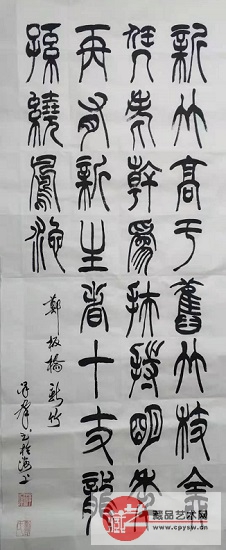 新竹高于舊竹枝全
凭老幹爲扶持明年
再有新生者十丈龍
孫繞鳳池
鄭板橋新竹
藏品艺术网
www.cpysw.cn